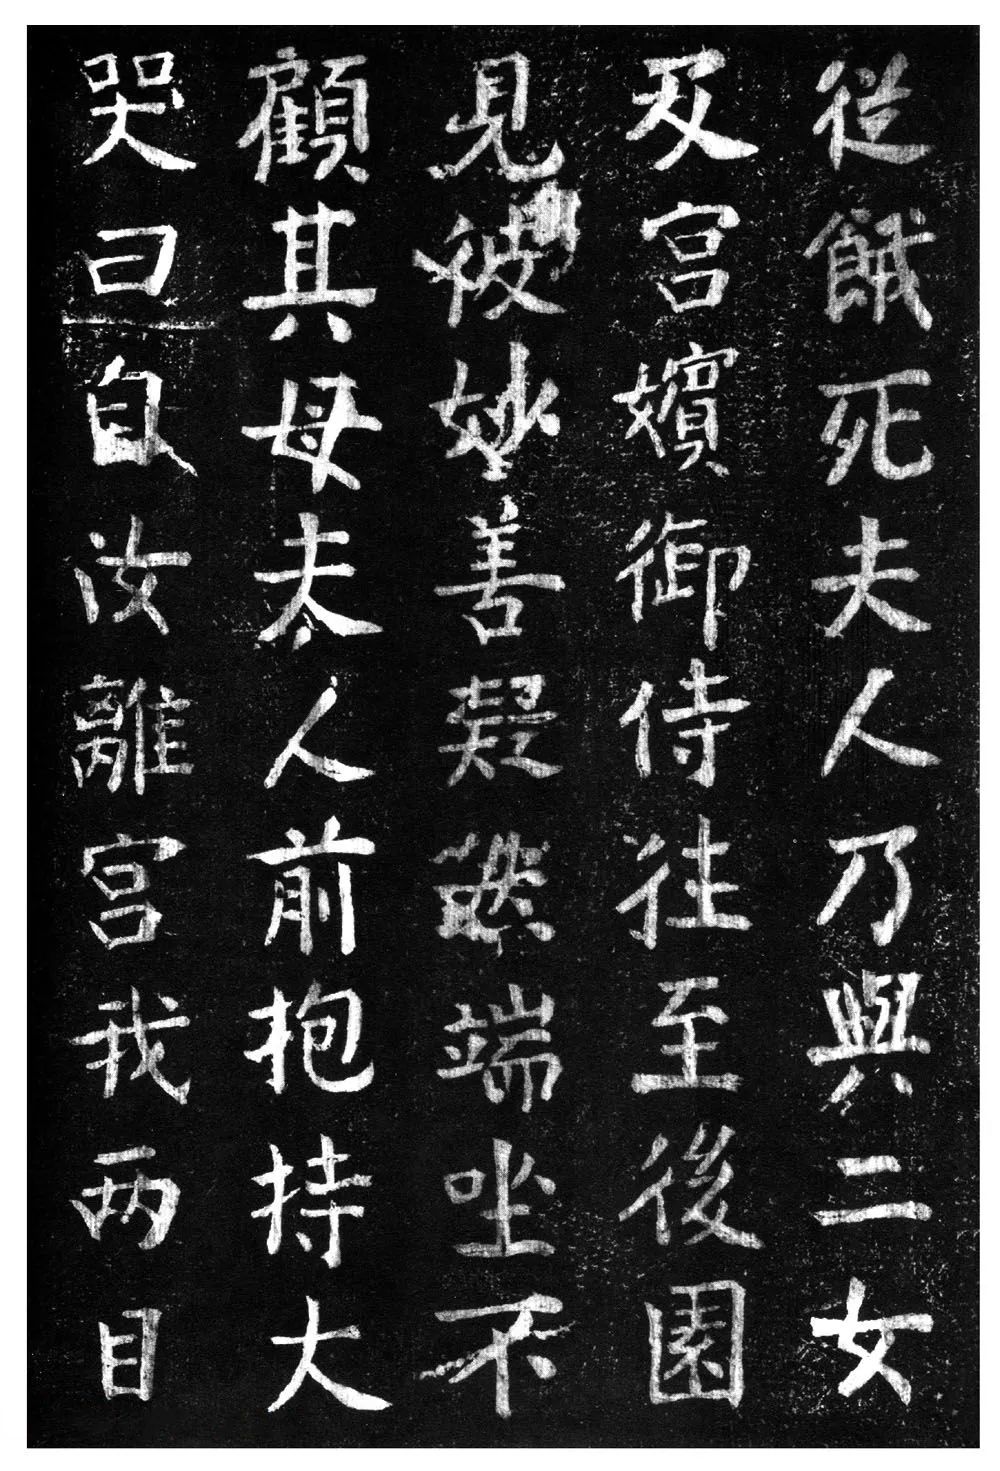 從餓死夫人乃與二女
及宮嬪御侍往至後園
見彼妙善凝然端坐不
顧其母夫人前抱持大
哭曰自汝離宮我两目